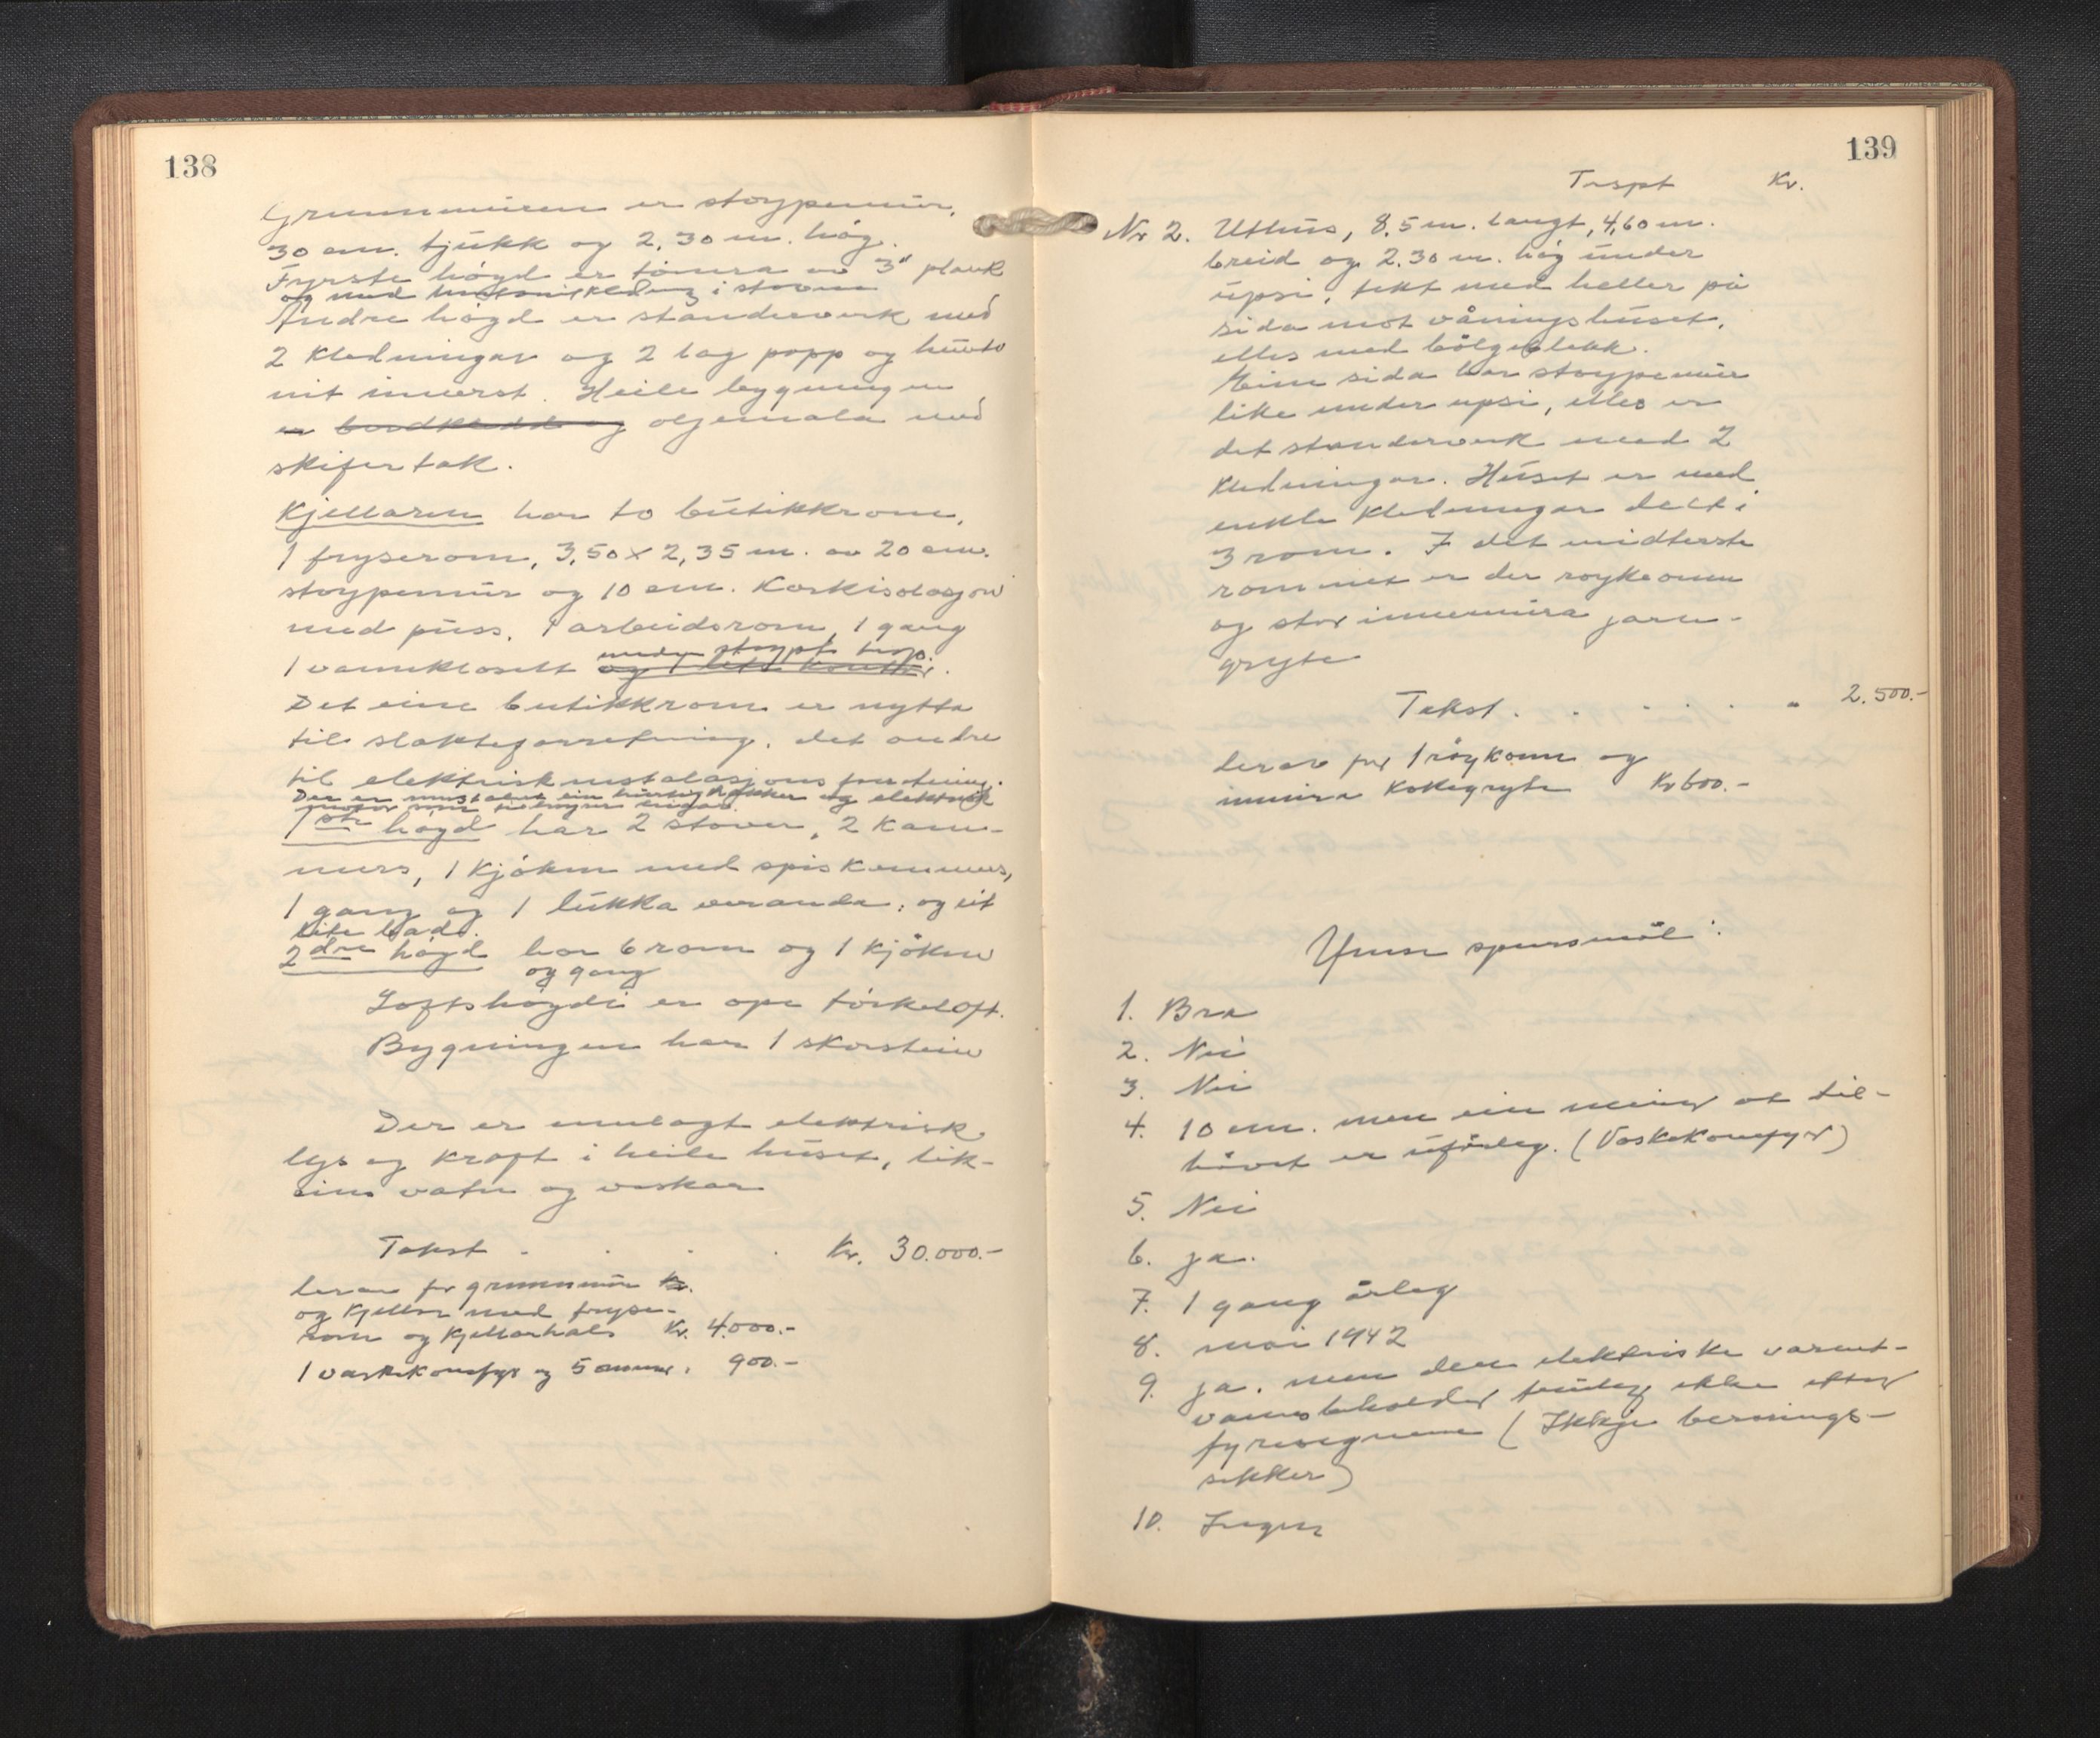 138
Grunnmuren er støypemur,
30 cm. tjukk og 2,30 m. høg.
Fyrste høgd er tømra av 3" plank
og med huntonitkledning i stovene
Andre høgd er standerverk med
2 kledningar og 2 lag papp og hunto
nit innerst. Heile bygningen
er bordkledd og oljemala med
skifertak.
Kjellaren har to butikkrom,
1 fryserom, 3,50 x 2,35 m. av 20 cm.
støypemur og 10 cm. Korkisolasjon
med puss, 1 arbeidsrom, 1 gang
1 vannklosett og 1 lite kontor.
med støypt trop.
Det eine butikkrom er nytta
til slakteforretning, det andre
til elektrisk instalasjons forretning.
Der er instalert ein hurtighakker og elektrisk
motor som tilhøyrer leigar.
1ste høgd har 2 stover, 2 kam-
mers, 1 kjøken med spiskammers,
1 gang og 1 lukka veranda, og eit
lite bad.
2dre høgd har 6 rom og 1 kjøken
og gang
Loftshøgdi er ope tørkeloft.
Bygningen har 1 skorstein
Der er innlagt elektrisk
lys og kraft i heile huset, lik-
eins vatn og vaskar
Takst . . . . Kr. 30.000.-
derav for grunnmur kr.
og kjellar med fryse-
rom og kjellarhals Kr. 4.000.-
1 vaskekomfyr og 5 omnar. 900.-
139
Trspt Kr.
Nr 2. Uthus, 8,5 m. langt, 4,60 m.
breid og 2.30 m. høg under
upsi, tekt med heller på
sida mot våningshuset,
elles med bølgeblekk.
Eine sida har støypemur
like under upsi, elles er
det standerverk med 2
kledningar. Huset er med
enkle kledningar delt i
3 rom. I det midterste
rommet er der røykeomn
og stor innemura jarn-
gryte
Takst . . . . . " 2.500.-
derav for 1 røykomn og
innmura kokegryte Kr 600.-
Ymse spursmål:
1. Bra
2. Nei
3. Nei
4. 10 cm. men ein meiner at til-
høvet er ufårleg. (Vaskekomfyr)
5. Nei
6. ja.
7. 1 gang årleg
8. mai 1942
9. ja. men den elektriske varmt-
vannsbeholder truleg ikkje etter
fyresegnene (Ikkje bernings-
sikker)
10. Ingen